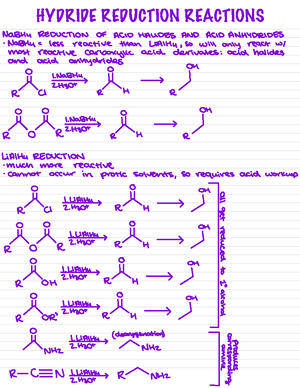 HYDRIDE REDUCTION REACTIONS
NaBH4 REDUCTION OF ACID HALIDES AND ACID ANHYDRIDES
· NaBH4 = less reactive than LiAlH4, so will only react w/
most reactive carboxylic acid derivates: acid halides
and acid anhydrides
O 1. NaBH4 O OH
R Cl 2. H3O+ R H R
O O 1. NaBH4 O OH
R O R 2. H3O+ R H R
LiAlH4 REDUCTION
· much more reactive
· cannot occur in protic solvents, so requires acid workup
O 1. LiAlH4 O OH
R Cl 2. H3O+ R H R
O O 1. LiAlH4 O OH
R O R 2. H3O+ R H R
O 1. LiAlH4 O OH
R OH 2. H3O+ R H R
O 1. LiAlH4 O OH
R OR' 2. H3O+ R H R
all get reduced to 1° alcohol
O 1. LiAlH4 (deoxygenation)
NH2 2. H3O+ NH2
R—C≡N 1. LiAlH4 2. H3O+ R NH2
produces corresponding amine